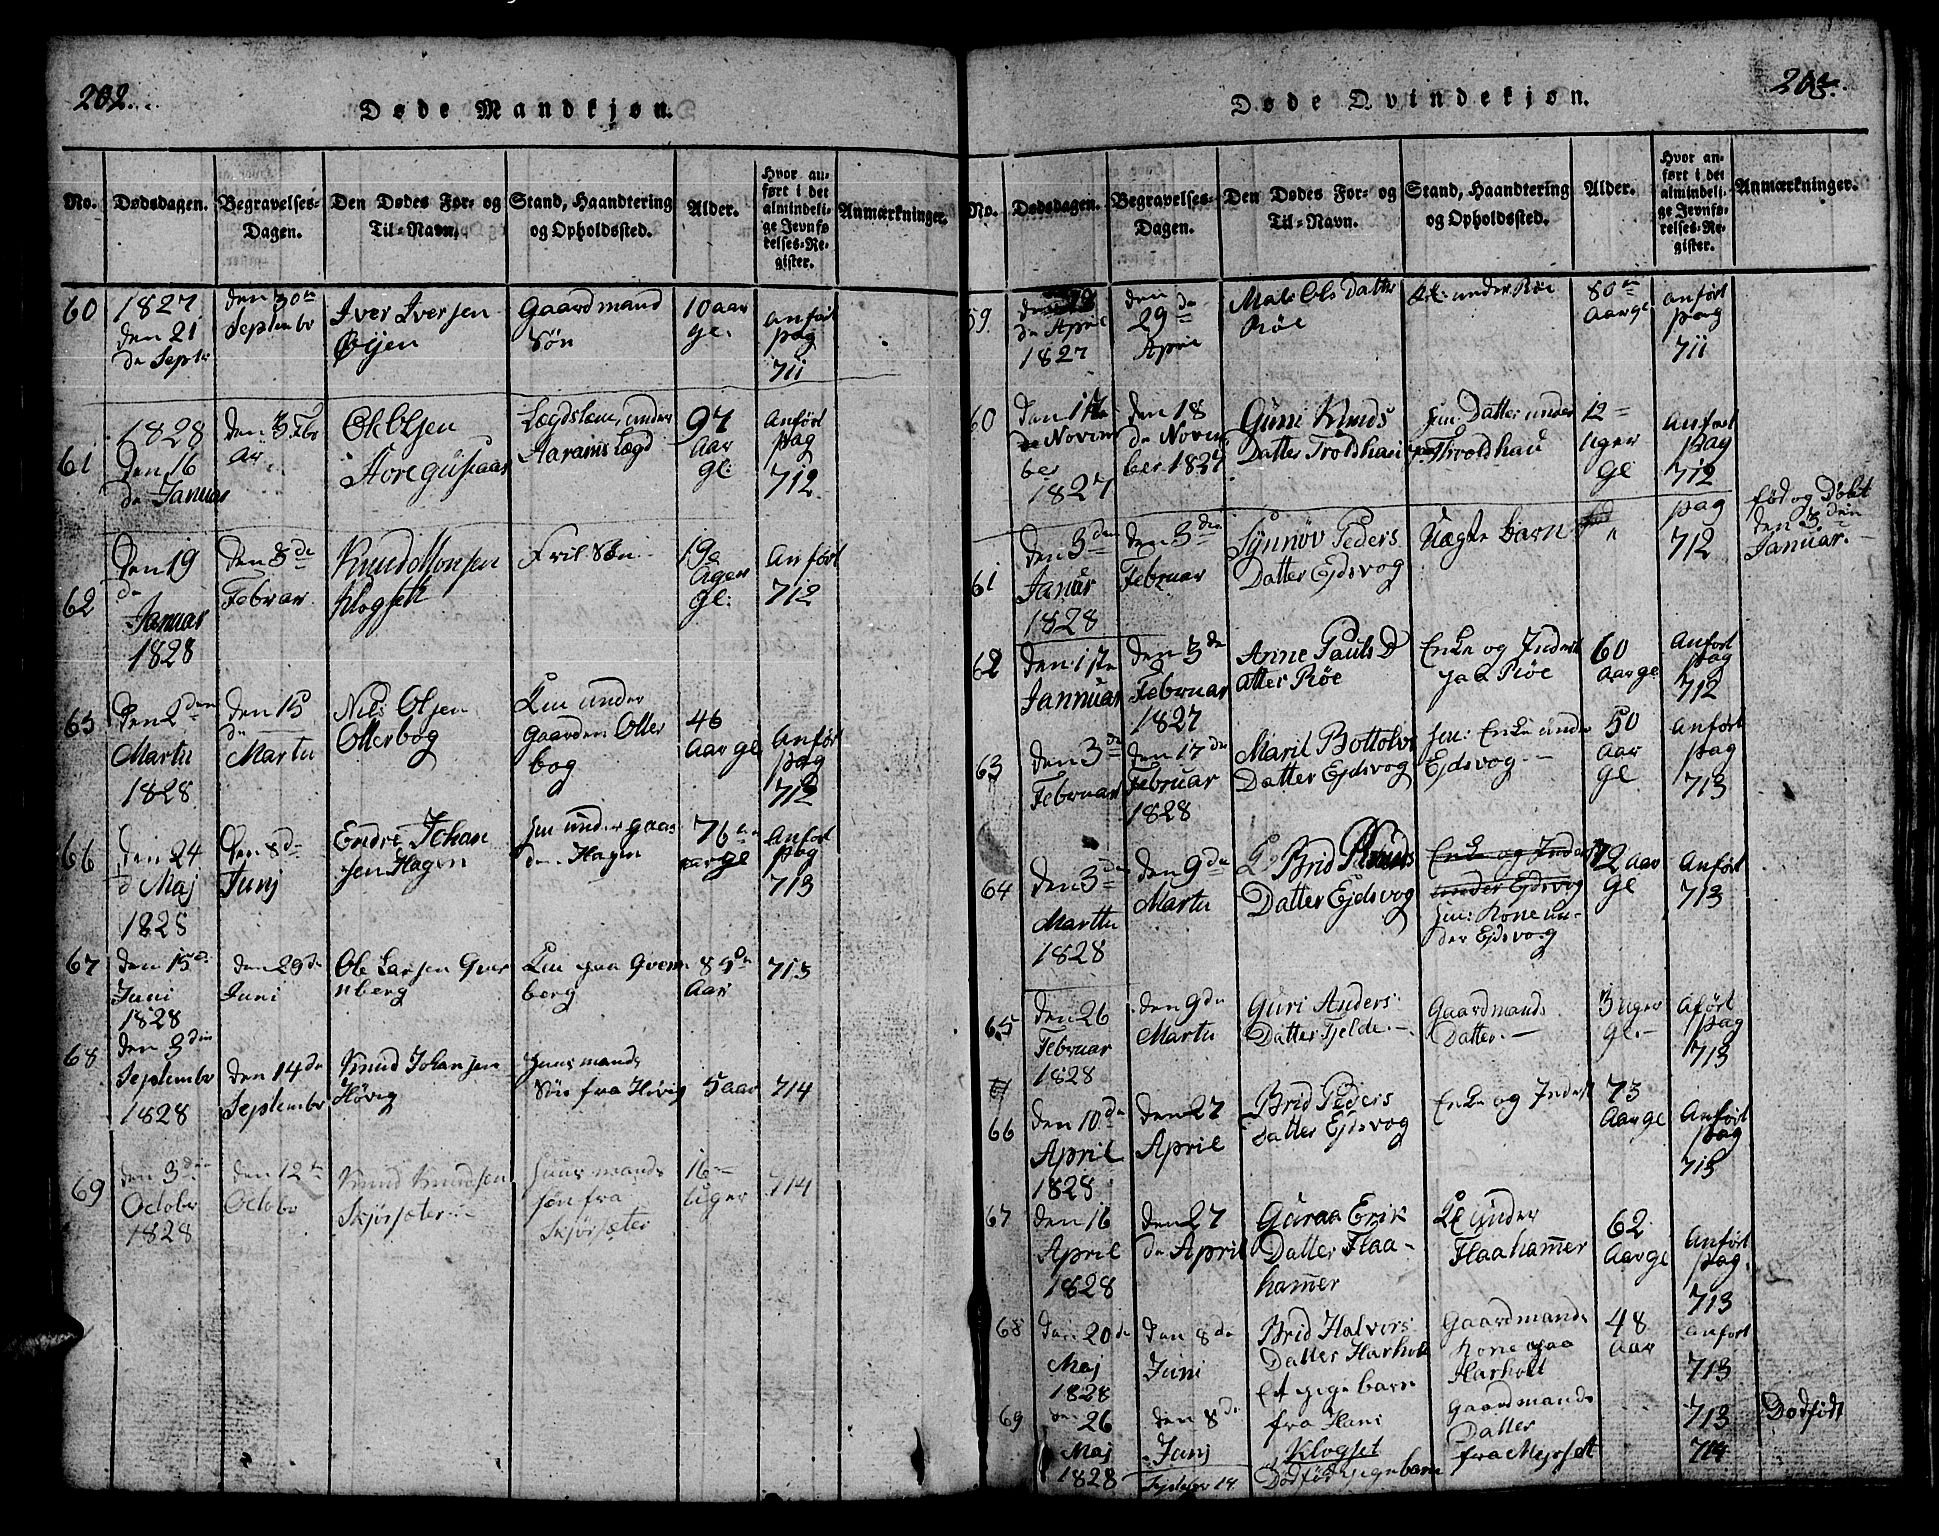 202.
Døde Mandkjøn.
No.
Dødsdagen.
Begravelses-
Dagen.
Den Dødes For- og
Til-Navn.
Stand, Haandtering
og Opholdssted.
Alder.
Hvor an-
ført i det
almindeli-
ge Jevnfø-
relses-Re-
gister.
Anmærkninger.
60
1827
den 21
de Septr
den 30te
Septembr
Iver Iversen
Øijen
Gaardmand
Søn
10 aar
gl.
anført
pag
711
61
1828
den 16
de Januar
den 3 Febr
ar
Ole Olsen
Lægdslem under
Aarams Lægd
97
Aar
gl:
Anført
pag
712
62
den 19
de
Januar
1828
den 3de
Februar
Knud Monsen
Klogset
19
Uger
gl:
Anført
712
den 2den
Martii
1828
den 15
de
Martii
Nils Olsen
Otterbog
under
Gaarden Otter
bog
46
Aar gl
Anført
pag
712
66
den 24
d Maj
1828
den 8de
Junj
Endre Johan
sen Hagen
under Gaar
den Hagen
76
aar gl
Anført
pag
713
67
den 15de
Juni
1828
den 29de
Juni
Ole Larsen Gver
nberg
paa Gvern
berg
Aar
713
68
den 3die
Septembr
1828
den 14de
Septembr
Knud Johansen
Høvig
Huusmands
Søn fra Høvig
5 aar
714
69
den 3die
October
1828
den 12te
Octobr
Knud Knudsen
Skjørsæter
Huusmands
søn fra
Skjørsæter
16
Uger
714
203.
Døde Qvindekjøn.
No.
Dødsdagen.
Begravelses-
Dagen.
Den Dødes For- og
Til-Navn.
Stand, Haandtering
og Opholdssted.
Alder.
Hvor an-
ført i det
almindeli-
ge Jevnfø-
relses-Re-
gister.
Anmærkninger.
59.
de April
1827
den
29de
April
Ols Datter
Røe
under Røe
80
Aar gl
anført
pag
711
60
den 11te
Novem
ber
1827
den 18
de Novem
ber 1827
Guni Knuds
Datter Troldhau
Datter under
Troldhau
12
Uger
Gl
Anført
pag
712
61
den 3de
Januar
1828
den 3die
Februar
Synnøv Peders
Datter Ejdsvog
Uægte barn
pag
712
fød og Døbt
den 3den
Januar.
62
den 1ste
Jannuar
den 3de
Februar
1827
Anne Pauls D
atter Røe
Enke og Inderst
paa Røe
60
Aar gl
Anført
pag
712
63
den 3de
Februar
den 17de
Februar
1828
Maril Bottolvs
Datter Ejdsvog
Enke under
Ejdsvog
50
Aar
Gl
Anført
pag
713
64
den 3de
Martii
1828
den 9de
Martii
Brid Knuds
Datter Ejdsvog
Enke og Inderst
under Ejdsvog
Kone un-
der Ejdsvog
72 aar
Gl
Anført
713
65
den 26
Februar
1828
den 9de
Martii
Guri Anders
Datter Tjelde
Gaardmands
Datter
3 uger
gl.
Aført
pag
713
66
den 10de
April
1828
den 27
April
Brid Peders
Datter Ejdsvog
Enke og Inderst
73
Aar gl
Anført
pag
713
67
den 16
April
1828
den 27
de April
Guraa Erik
Datter Flaa-
ham̄er
under
Flaaham̄er
62
Aar gl
Anført
pag.
713
68
den 20de
Maj
1828
den 8de
Juni
Brid Halvors
Datter Harholt
Gaardmands
Kone paa
Harholt
48
Aar
Anført
713
69
den 26
Maj
1828
den 8de
Junj
Et pige barn
fra
Klogset
Gaardmands
Datter
713
Dødfødt
Dødfød pige barn
714